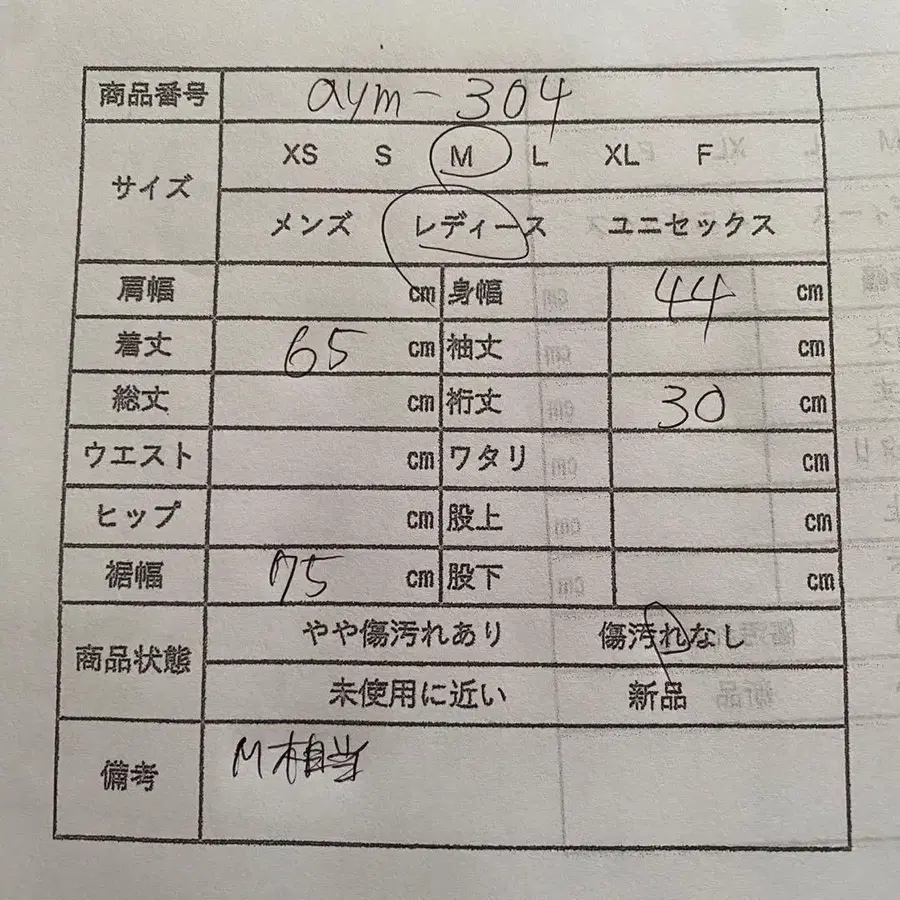 商品番号 aym-304
サイズ XS S M L XL F
メンズ レディース ユニセックス
肩幅 cm 身幅 44 cm
着丈 65 cm 袖丈 cm
総丈 cm 裄丈 30 cm
ウエスト cm ワタリ cm
ヒップ cm 股上 cm
裾幅 75 cm 股下 cm
商品状態 やや傷汚れあり 傷汚れなし
未使用に近い 新品
備考 M相当